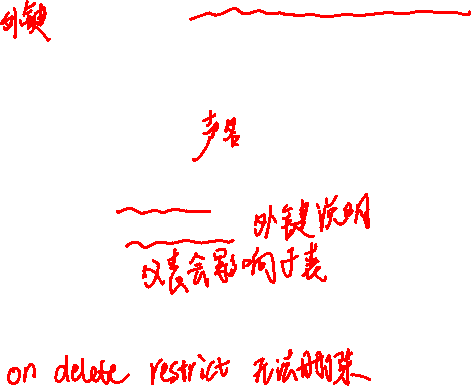 外键
声名
外键说明
父表会影响子表
on delete restrict 无法删除